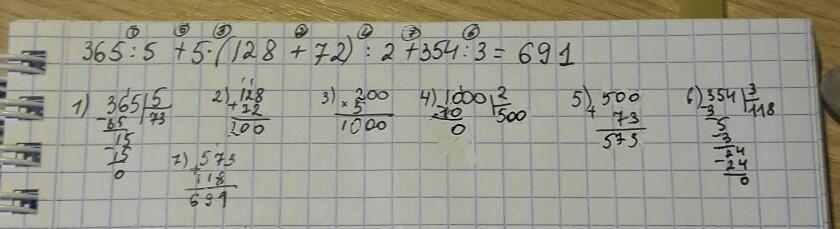 1 5 3 2 4 7 6
365:5 + 5·(128 + 72) : 2 + 354:3 = 691
1) 365 5 2) 128 3) 200 4) 1000 2 5) 500 6) 354 3
73 + 72 × 5 10 500 + 73 - 3 118
15 200 1000 0 573 5
- 15 - 3
0 24
- 24
0
7) 573
+ 118
691